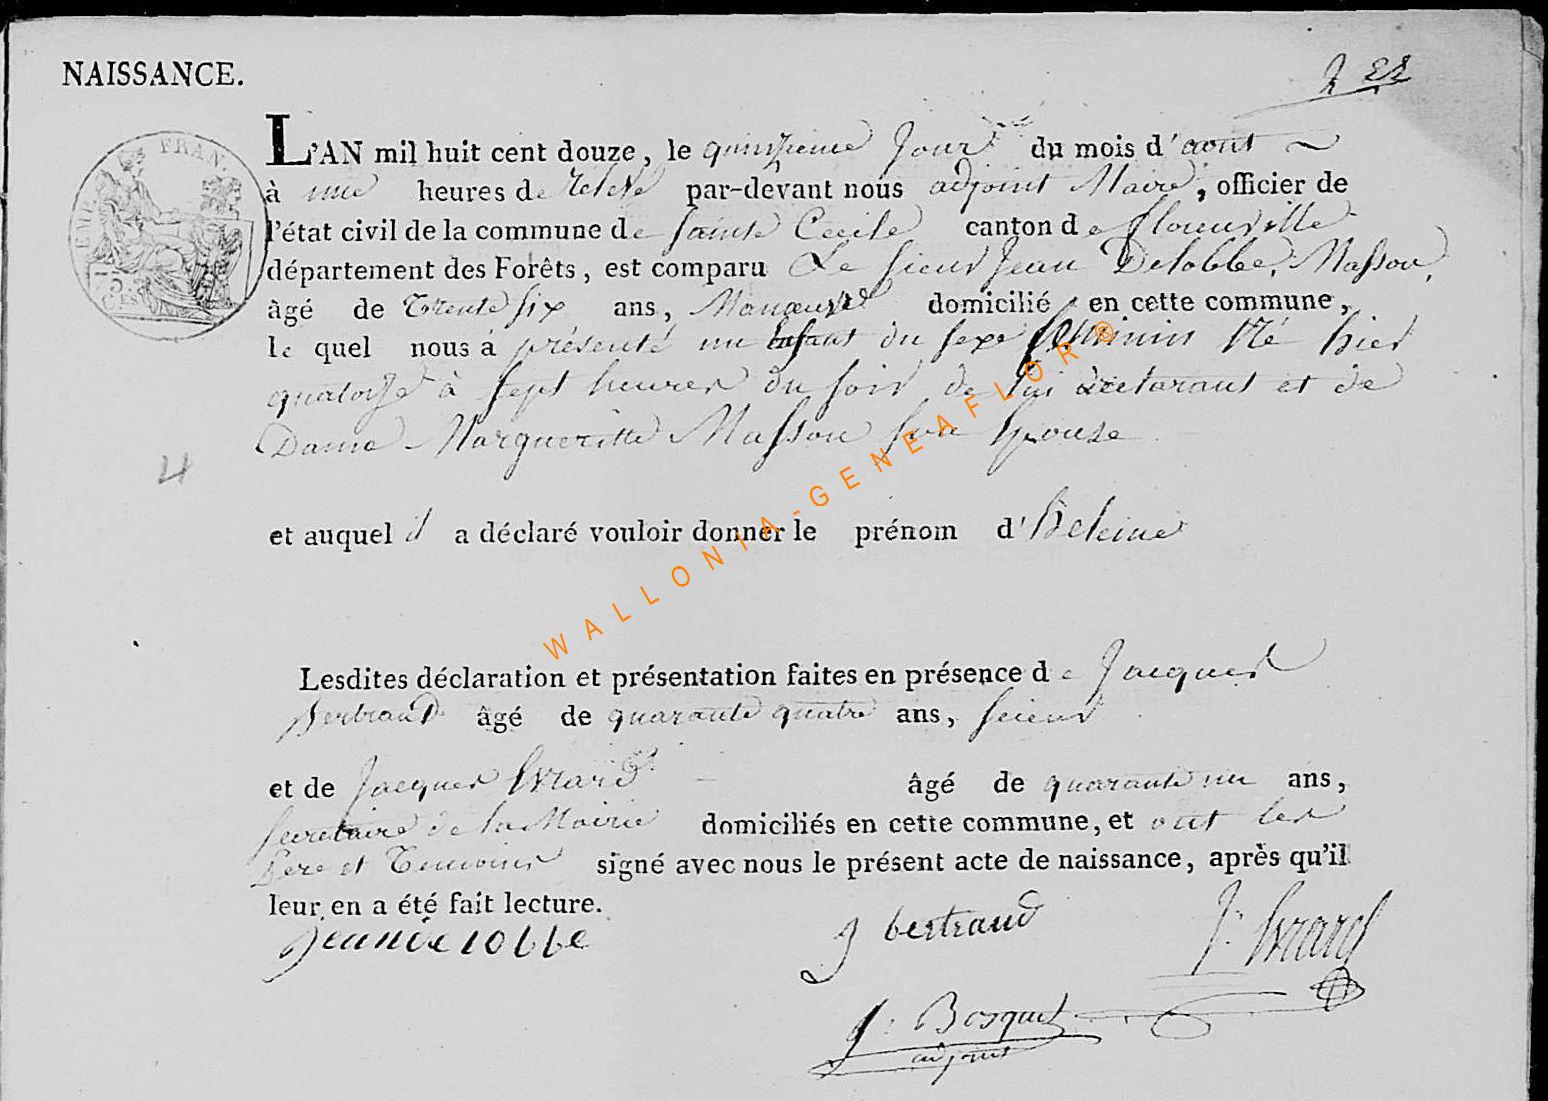 NAISSANCE.
L'AN mil huit cent douze, le quinzieme Jour du mois d'aout
à une heures de relevé par-devant nous adjoint Maire, officier de
l'état civil de la commune de Sainte Cecile canton de florenville
département des Forêts, est comparu Le sieur Jean Delobbe, Masson,
âgé de Trente six ans, Manœuvre domicilié en cette commune,
le quel nous a présenté un Enfant du sexe feminin Né hier
quatorze à sept heures du soir de lui declarant et de
Dame Margueritte Masson son Epouse
4
et auquel il a déclaré vouloir donner le prénom d'Heleine
Lesdites déclaration et présentation faites en présence de Jacques
Bertrand âgé de quarante quatre ans, scieur
et de Jacques Evrard âgé de quarante un ans,
secretaire de la Mairie domiciliés en cette commune, et ont les
Pere et Temoins signé avec nous le présent acte de naissance, après qu'il
leur en a été fait lecture.
jean de lobbe J bertrand J: Evrard
J: Bosquet
adjoint
FRAN.
EMP.
75
C.ES
WALLONIA-GENEAFLOR®